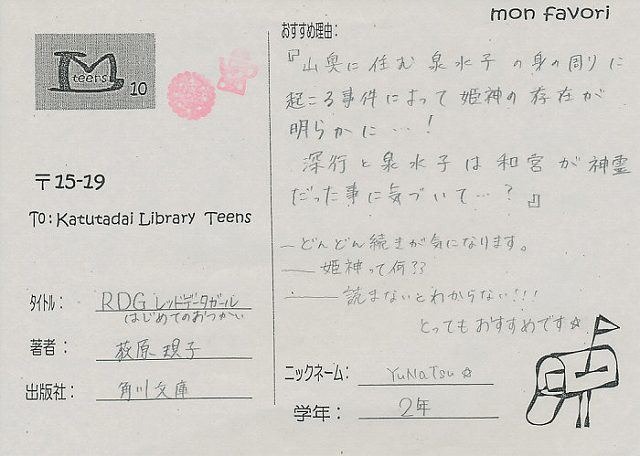 mon favori
teens
10
〒15-19
To: Katutadai Library Teens
タイトル： RDG レッドデータガール
はじめてのおつかい
著者： 荻原規子
出版社： 角川文庫
おすすめ理由：
『山奥に住む泉水子の身の周りに
起こる事件によって姫神の存在が
明らかに…！
深行と泉水子は和宮が神霊
だった事に気づいて…？』
―どんどん続きが気になります。
――姫神って何??
――読まないとわからない!!!
とってもおすすめです☆
ニックネーム： YuNaTsu☆
学年： 2年